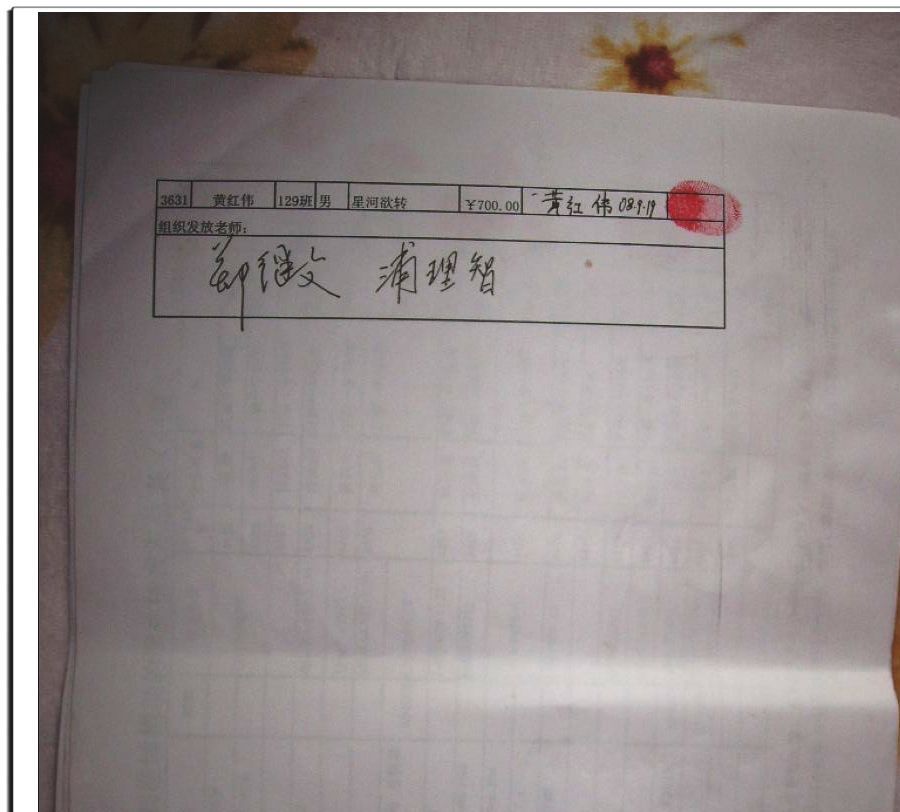 3631 黄红伟 129班 男 星河欲转 ￥700.00 黄红伟 08.9.19
组织发放老师：
郑继文 浦理智